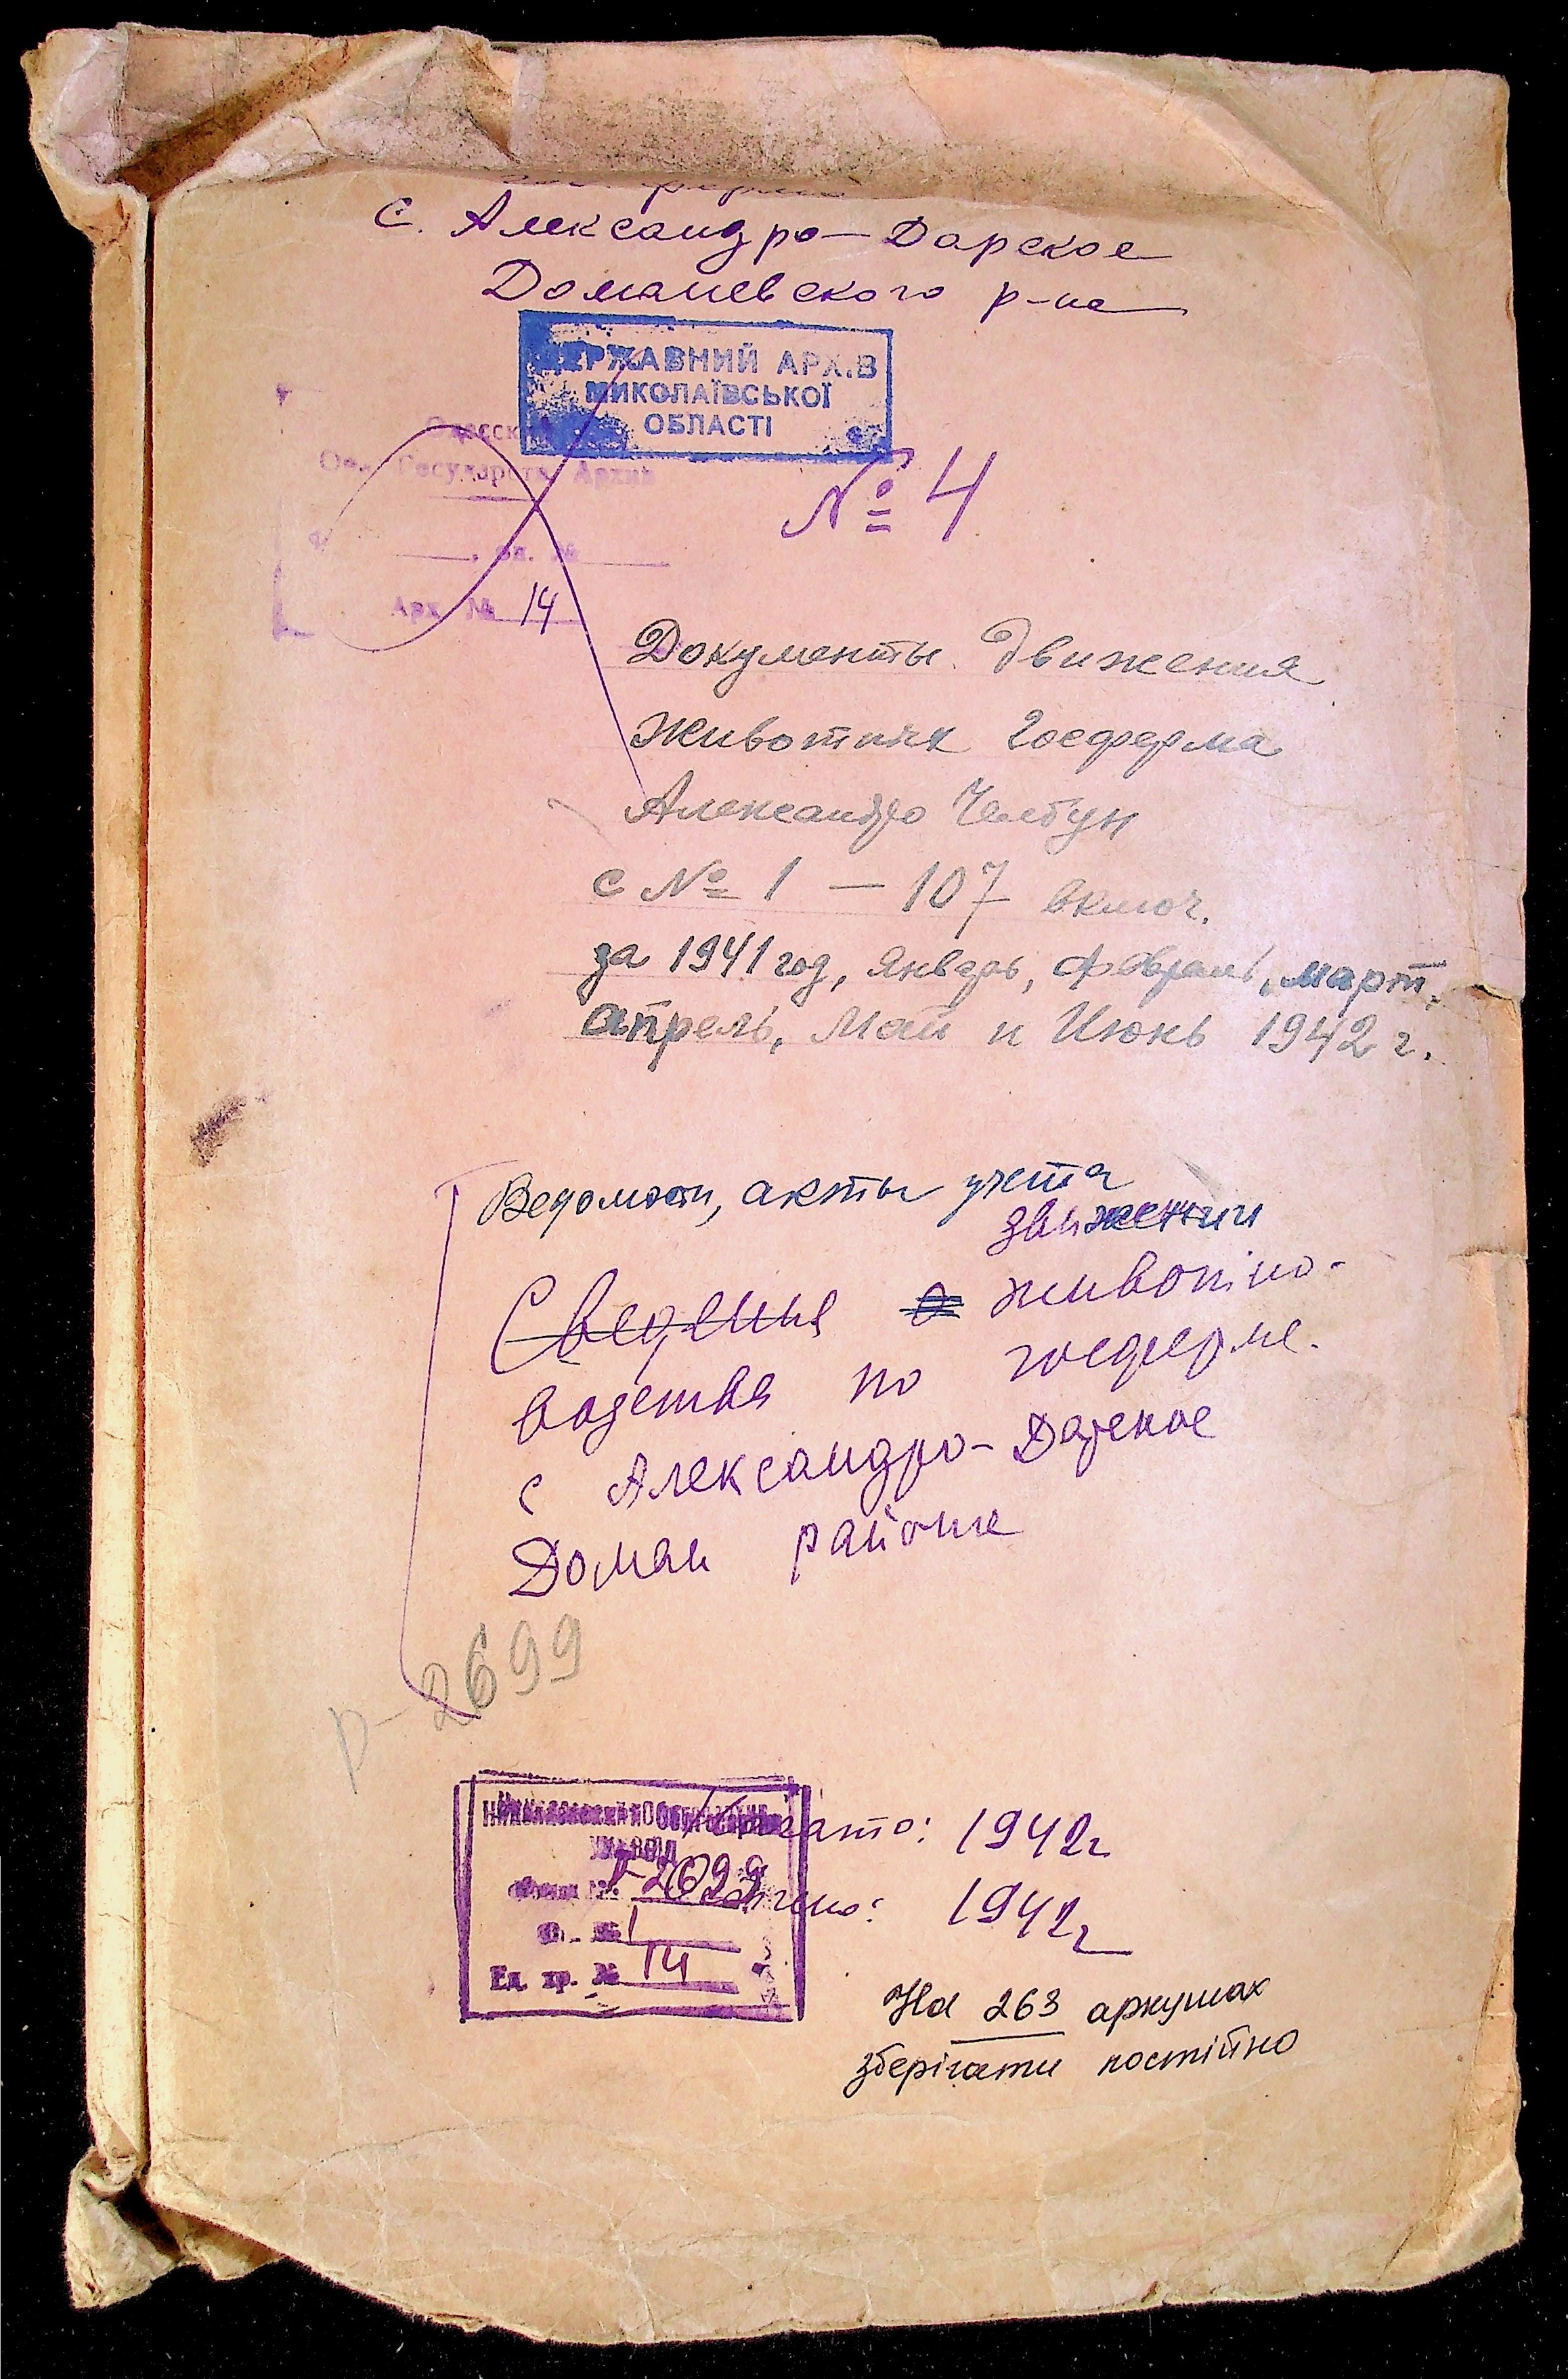 с. Александро-Дарское
Доманевского р-на
ДЕРЖАВНИЙ АРХ.В
МИКОЛАЇВСЬКОЇ
ОБЛАСТІ
Одесский
Обл. Государств. Архив
№ 4
оп. №
Арх. № 14
Документы движения
животных Госферма
Александро
с № 1 — 107 включ.
за 1941 год, январь, февраль, март,
апрель, май и Июнь 1942 г.
Ведомости, акты учета
движении
Сведения о животно-
водства по госферме
с Александро-Дарское
Доман районе
Р-2699
Начато: 1942г
1942г
Р-2699
№ 1
Ед. хр. № 14
На 263 аркушах
зберігати постійно